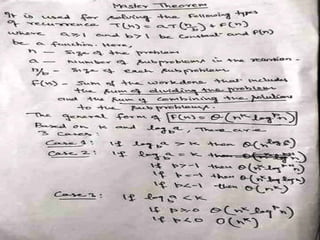 Master Theorem
It is used for solving the following types
of recurrence T(n) = aT(n/b) + F(n)
where a≥1 and b>1 be constant and F(n)
be a function. Here,
n - Size of the problem
a — number of subproblems in the
n/b - Size of each subproblem.
F(n) - Sum of the work done that includes
the sum of dividing the problem
and the sum of combining the solution
to the subproblems.
The general form of F(n) = θ(n^k log^p n)
Based on k and log_b a, There are
3 cases:
Case 1: If log_b a > k then θ(n^log_b a)
Case 2: If log_b a = k
If p>-1 then θ(n^k log^p+1 n)
If p=-1 then θ(n^k log log n)
If p<-1 then θ(n^k)
Case 3: If log_b a < k
If p≥0 θ(n^k log^p n)
If p<0 O(n^k)